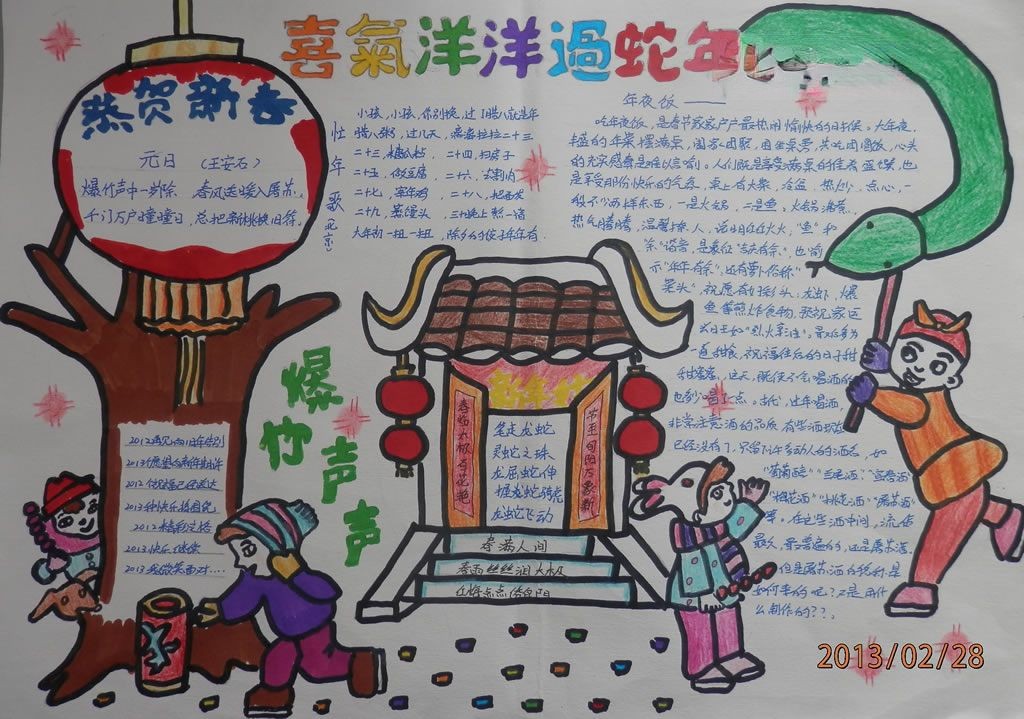 喜氣洋洋過蛇年
恭贺新春
元日 (王安石)
爆竹声中一岁除 春风送暖入屠苏
千门万户曈曈日，总把新桃换旧符
忙年歌（北京）
小孩，小孩，你别馋，过了腊八就是年
腊八粥，过几天，漓漓拉拉二十三
二十三，糖瓜粘，二十四，扫房子
二十五，做豆腐，二十六，去割肉
二十七，宰年鸡，二十八，把面发
二十九，蒸馒头，三十晚上熬一宿
大年初一扭一扭
年夜饭——
吃年夜饭，是春节家家户户最热闹愉快的时候。大年夜，
丰盛的年菜摆满桌，阖家团聚，围坐桌旁，共吃团圆饭，心头
的充实感真是难以言喻。人们既是享受满桌的佳肴盛馔，也
是享受那份快乐的气氛，桌上有大菜、冷盆、热炒、点心，一
般少不了两样东西，一是火锅，二是鱼。火锅沸煮，
热气腾腾，温馨撩人，说明红红火火，“鱼”和
“余”谐音，是象征“吉庆有余”，也喻
示“年年有余”。还有萝卜俗称
菜头，祝愿有好彩头；龙虾、爆
鱼等煎炸食物，预祝家运
兴旺如“烈火烹油”。最后多为
一道甜食，祝福往后的日子甜
甜蜜蜜，这天，既使不会喝酒的
也多少喝一点。古代，过年喝酒，
非常注意酒的品质，有些酒现在
已经没有了，只留下许多动人的酒名，如
“葡萄醅”“兰尾酒”“宜春酒”
“梅花酒”“桃花酒”“屠苏酒”
等。在这些酒中间，流传
最久，最普遍的，还是屠苏酒。
但是屠苏酒的名称是
如何来的呢？又是用什
么制作的？？
爆竹声声
新年好
春临太极百花艳
节至间阳万象新
笔走龙蛇
灵蛇之珠
龙屈蛇伸
握龙蛇骑虎
龙蛇飞动
春满人间
春雨丝丝润太极
2012再见
2013愿望
2012
2013种快乐
2012精彩
2013快乐继续
2013我微笑面对....
2013/02/28